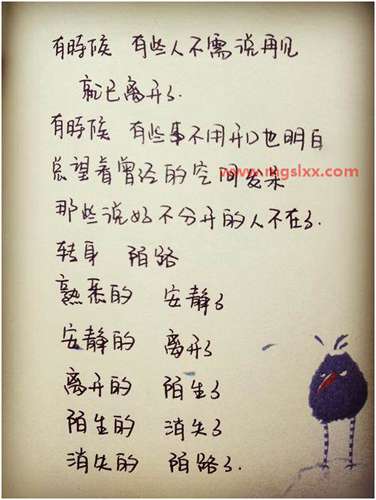 有時候 有些人不需说再见
就已离开了.
有時候 有些事不用开口也明白
www.mgslxx.com
总望着曾经的空间发呆
那些说好不分开的人不在了.
转身 陌路
熟悉的 安静了
安静的 离开了
离开的 陌生了
陌生的 消失了
消失的 陌路了.